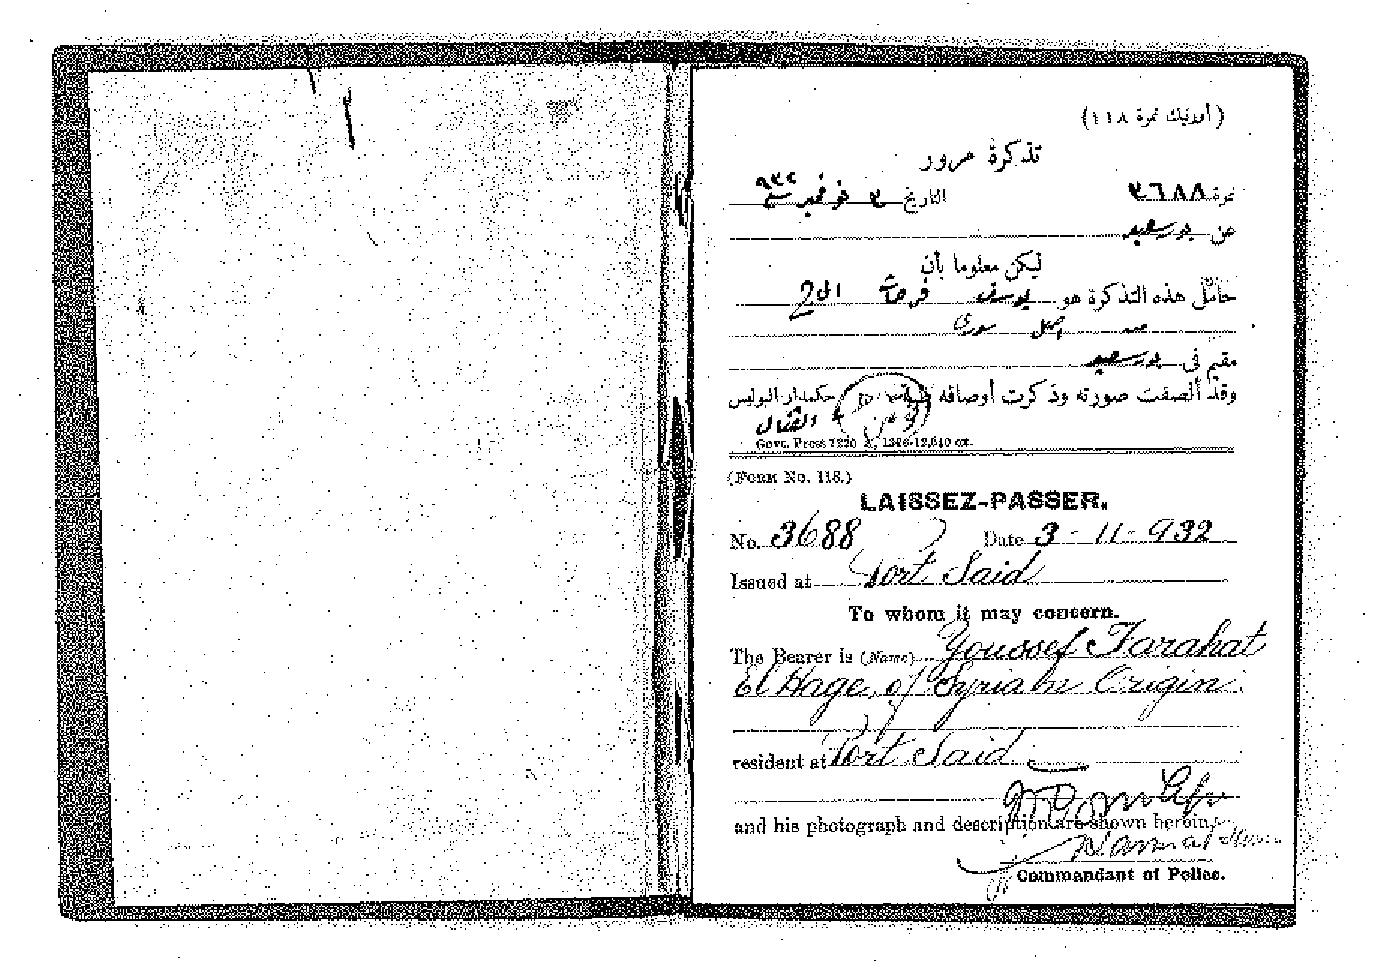 (أورنيك نمرة ١١٨)
تذكرة مرور
نمرة ٣٦٨٨ التاريخ ٣ نوفمبر سنة ٩٣٢
عن بورسعيد
ليكن معلوما بأن
حامل هذه التذكرة هو يوسف فرحات الحاج
اصل سورى
مقيم فى بورسعيد
وقد ألصقت صورته وذكرت أوصافه حكمدار البوليس
القنال
Govt. Press 7220
(Form No. 118.)
LAISSEZ-PASSER.
No. 3688 Date 3-11-932
Issued at Port Said
To whom it may concern.
The Bearer is (Name) Youssef Farahat
El Hage, of Syrian Origin.
resident at Port Said
and his photograph and description are shown herein.
Commandant of Police.